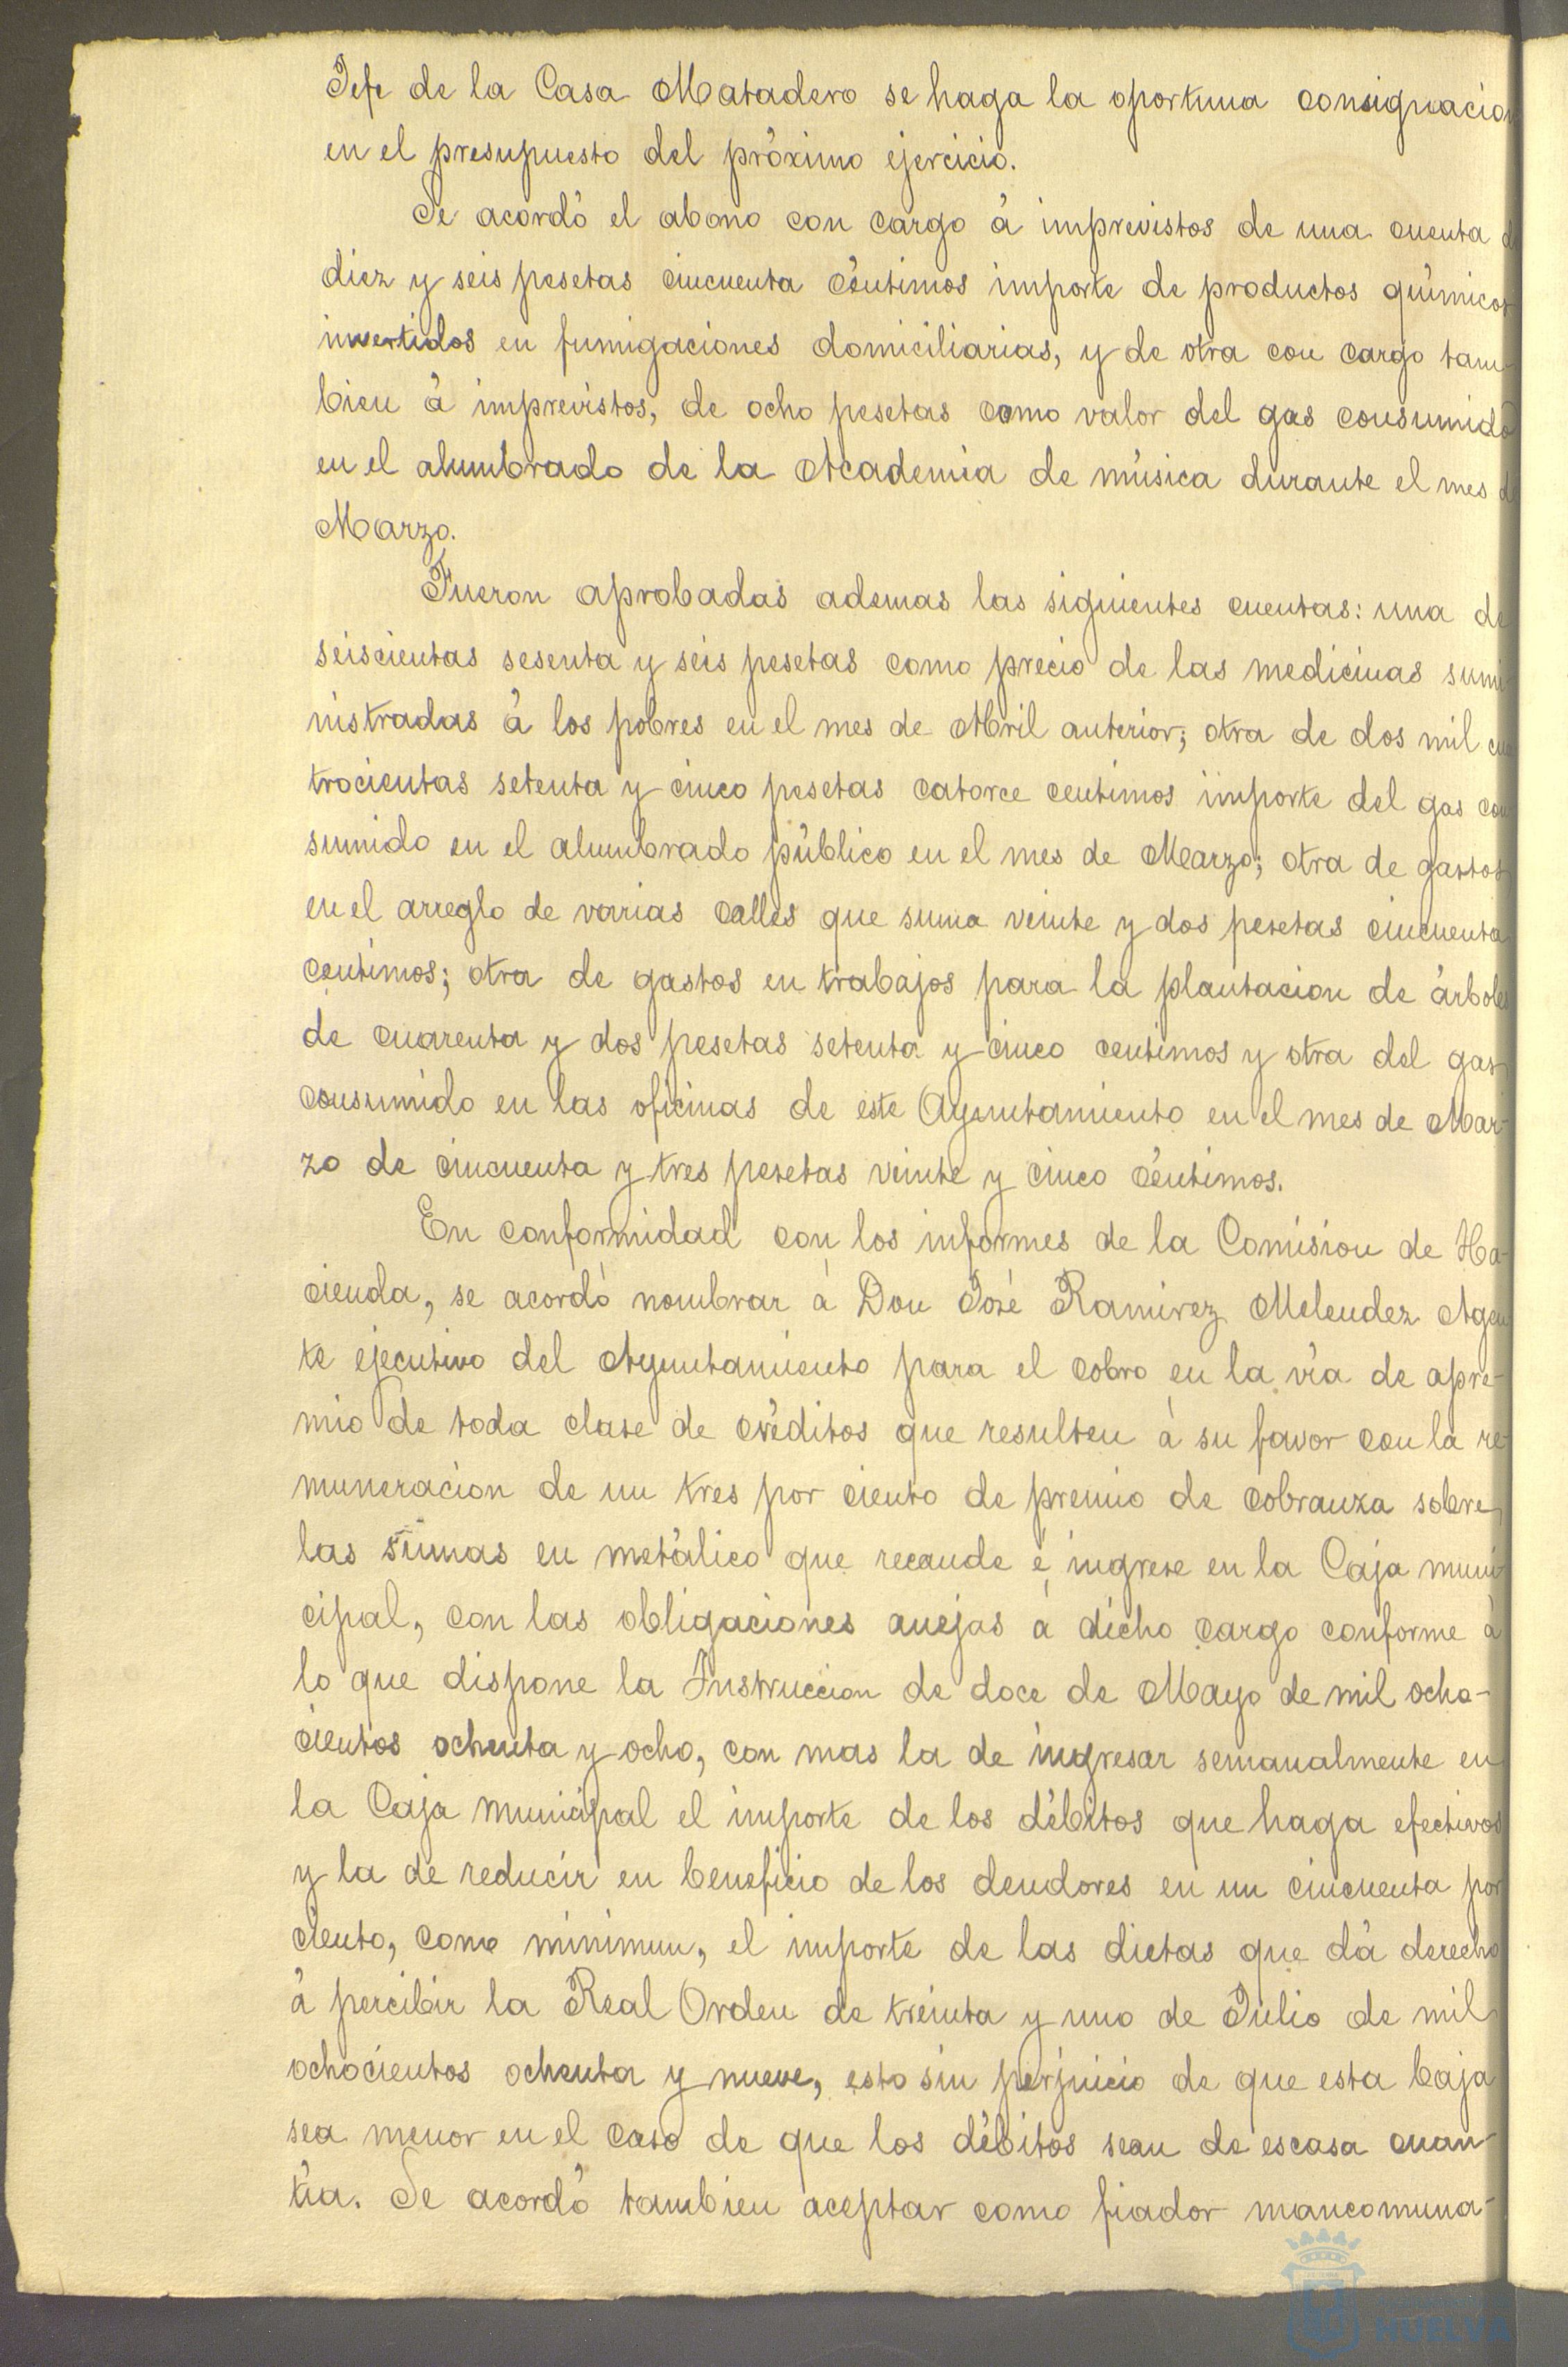 Jefe de la Casa Matadero se haga la oportuna consignacion
en el presupuesto del próximo ejercicio.
Se acordó el abono con cargo á imprevistos de una cuenta de
diez y seis pesetas cincuenta céntimos importe de productos químicos
invertidos en fumigaciones domiciliarias, y de otra con cargo tam-
bien á imprevistos, de ocho pesetas como valor del gas consumido
en el alumbrado de la Academia de música durante el mes de
Marzo.
Fueron aprobadas ademas las siguientes cuentas: una de
seiscientas sesenta y seis pesetas como precio de las medicinas sumi-
nistradas á los pobres en el mes de Abril anterior; otra de dos mil cua
trocientas setenta y cinco pesetas catorce centimos importe del gas con
sumido en el alumbrado público en el mes de Marzo; otra de gastos
en el arreglo de varias calles que suma veinte y dos pesetas cincuenta
centimos; otra de gastos en trabajos para la plantacion de árboles
de cuarenta y dos pesetas setenta y cinco centimos y otra del gas
consumido en las oficinas de este Ayuntamiento en el mes de Mar-
zo de cincuenta y tres pesetas veinte y cinco céntimos.
En conformidad con los informes de la Comision de Ha-
cienda, se acordó nombrar á Don José Ramirez Melendez Agen
te ejecutivo del Ayuntamiento para el cobro en la vía de apre-
mio de toda clase de créditos que resulten á su favor con la re-
muneracion de un tres por ciento de premio de cobranza sobre
las sumas en metálico que recaude é ingrese en la Caja muni-
cipal, con las obligaciones anejas á dicho cargo conforme á
lo que dispone la Instruccion de doce de Mayo de mil ocho-
cientos ochenta y ocho, con mas la de ingresar semanalmente en
la Caja municipal el importe de los débitos que haga efectivos
y la de reducir en beneficio de los deudores en un cincuenta por
ciento, como mínimun, el importe de las dietas que dá derecho
á percibir la Real Orden de treinta y uno de Julio de mil
ochocientos ochenta y nueve, esto sin perjuicio de que esta baja
sea menor en el caso de que los débitos sean de escasa cuan-
tía. Se acordó tambien aceptar como fiador mancomuna-
HUELVA